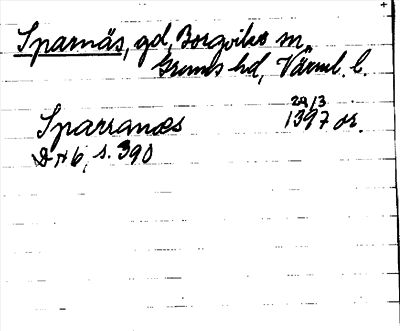 Sparnäs, gd, Borgviks sn,
Grums hd, Värml. l.
29/3
Sparranæs 1397 or.
DN 6, s. 390